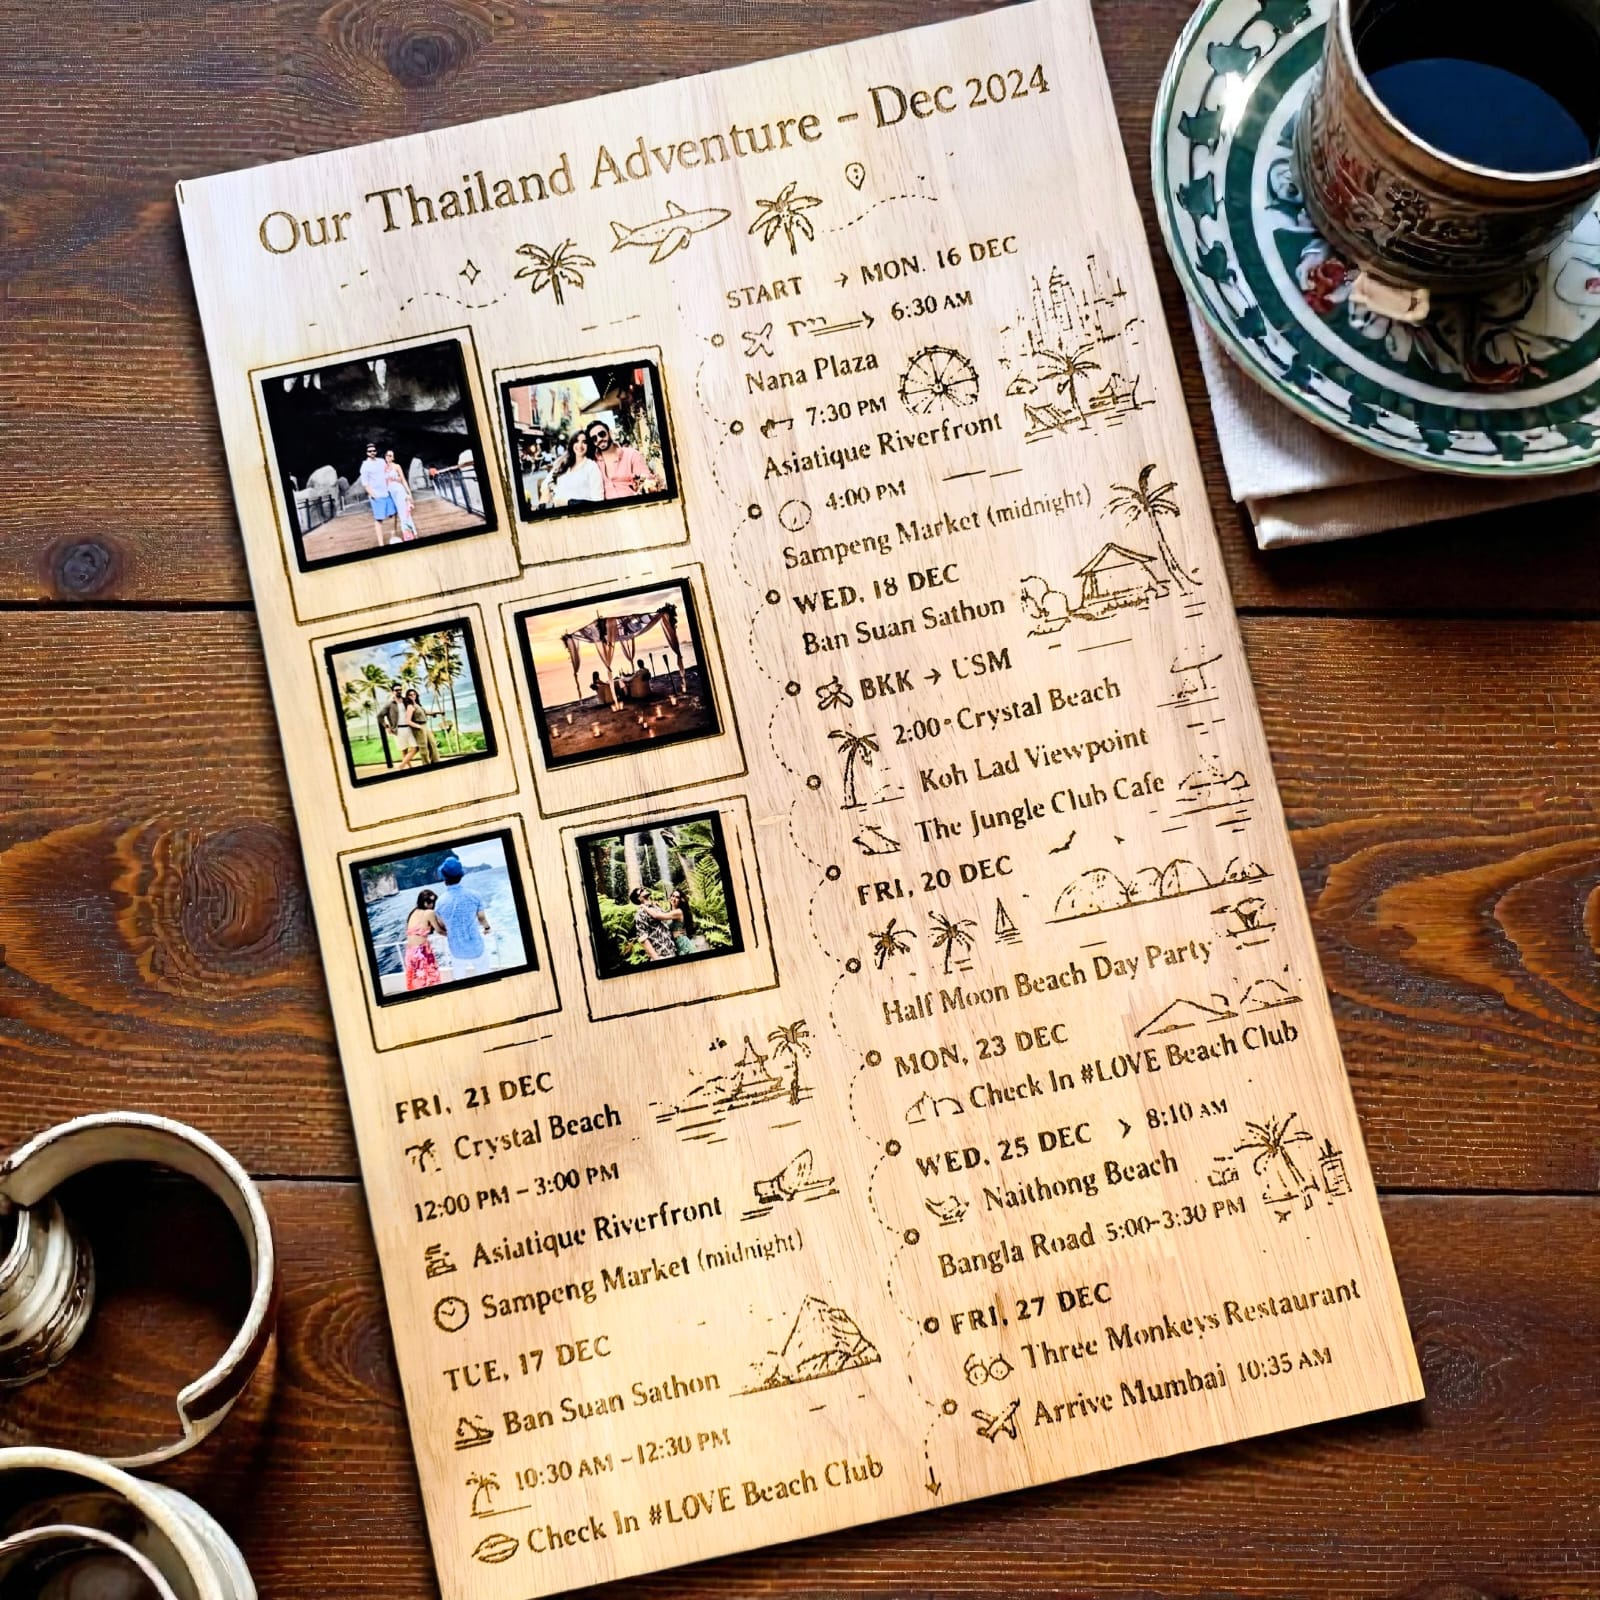 Our Thailand Adventure - Dec 2024
START → MON. 16 DEC
6:30 AM
Nana Plaza
7:30 PM
Asiatique Riverfront
4:00 PM
Sampeng Market (midnight)
WED. 18 DEC
Ban Suan Sathon
BKK → USM
2:00 • Crystal Beach
Koh Lad Viewpoint
The Jungle Club Cafe
FRI, 20 DEC
Half Moon Beach Day Party
MON, 23 DEC
Check In #LOVE Beach Club
WED. 25 DEC > 8:10 AM
Naithong Beach
Bangla Road 5:00-3:30 PM
FRI, 27 DEC
Three Monkeys Restaurant
Arrive Mumbai 10:35 AM
FRI, 21 DEC
Crystal Beach
12:00 PM - 3:00 PM
Asiatique Riverfront
Sampeng Market (midnight)
TUE, 17 DEC
Ban Suan Sathon
10:30 AM - 12:30 PM
Check In #LOVE Beach Club